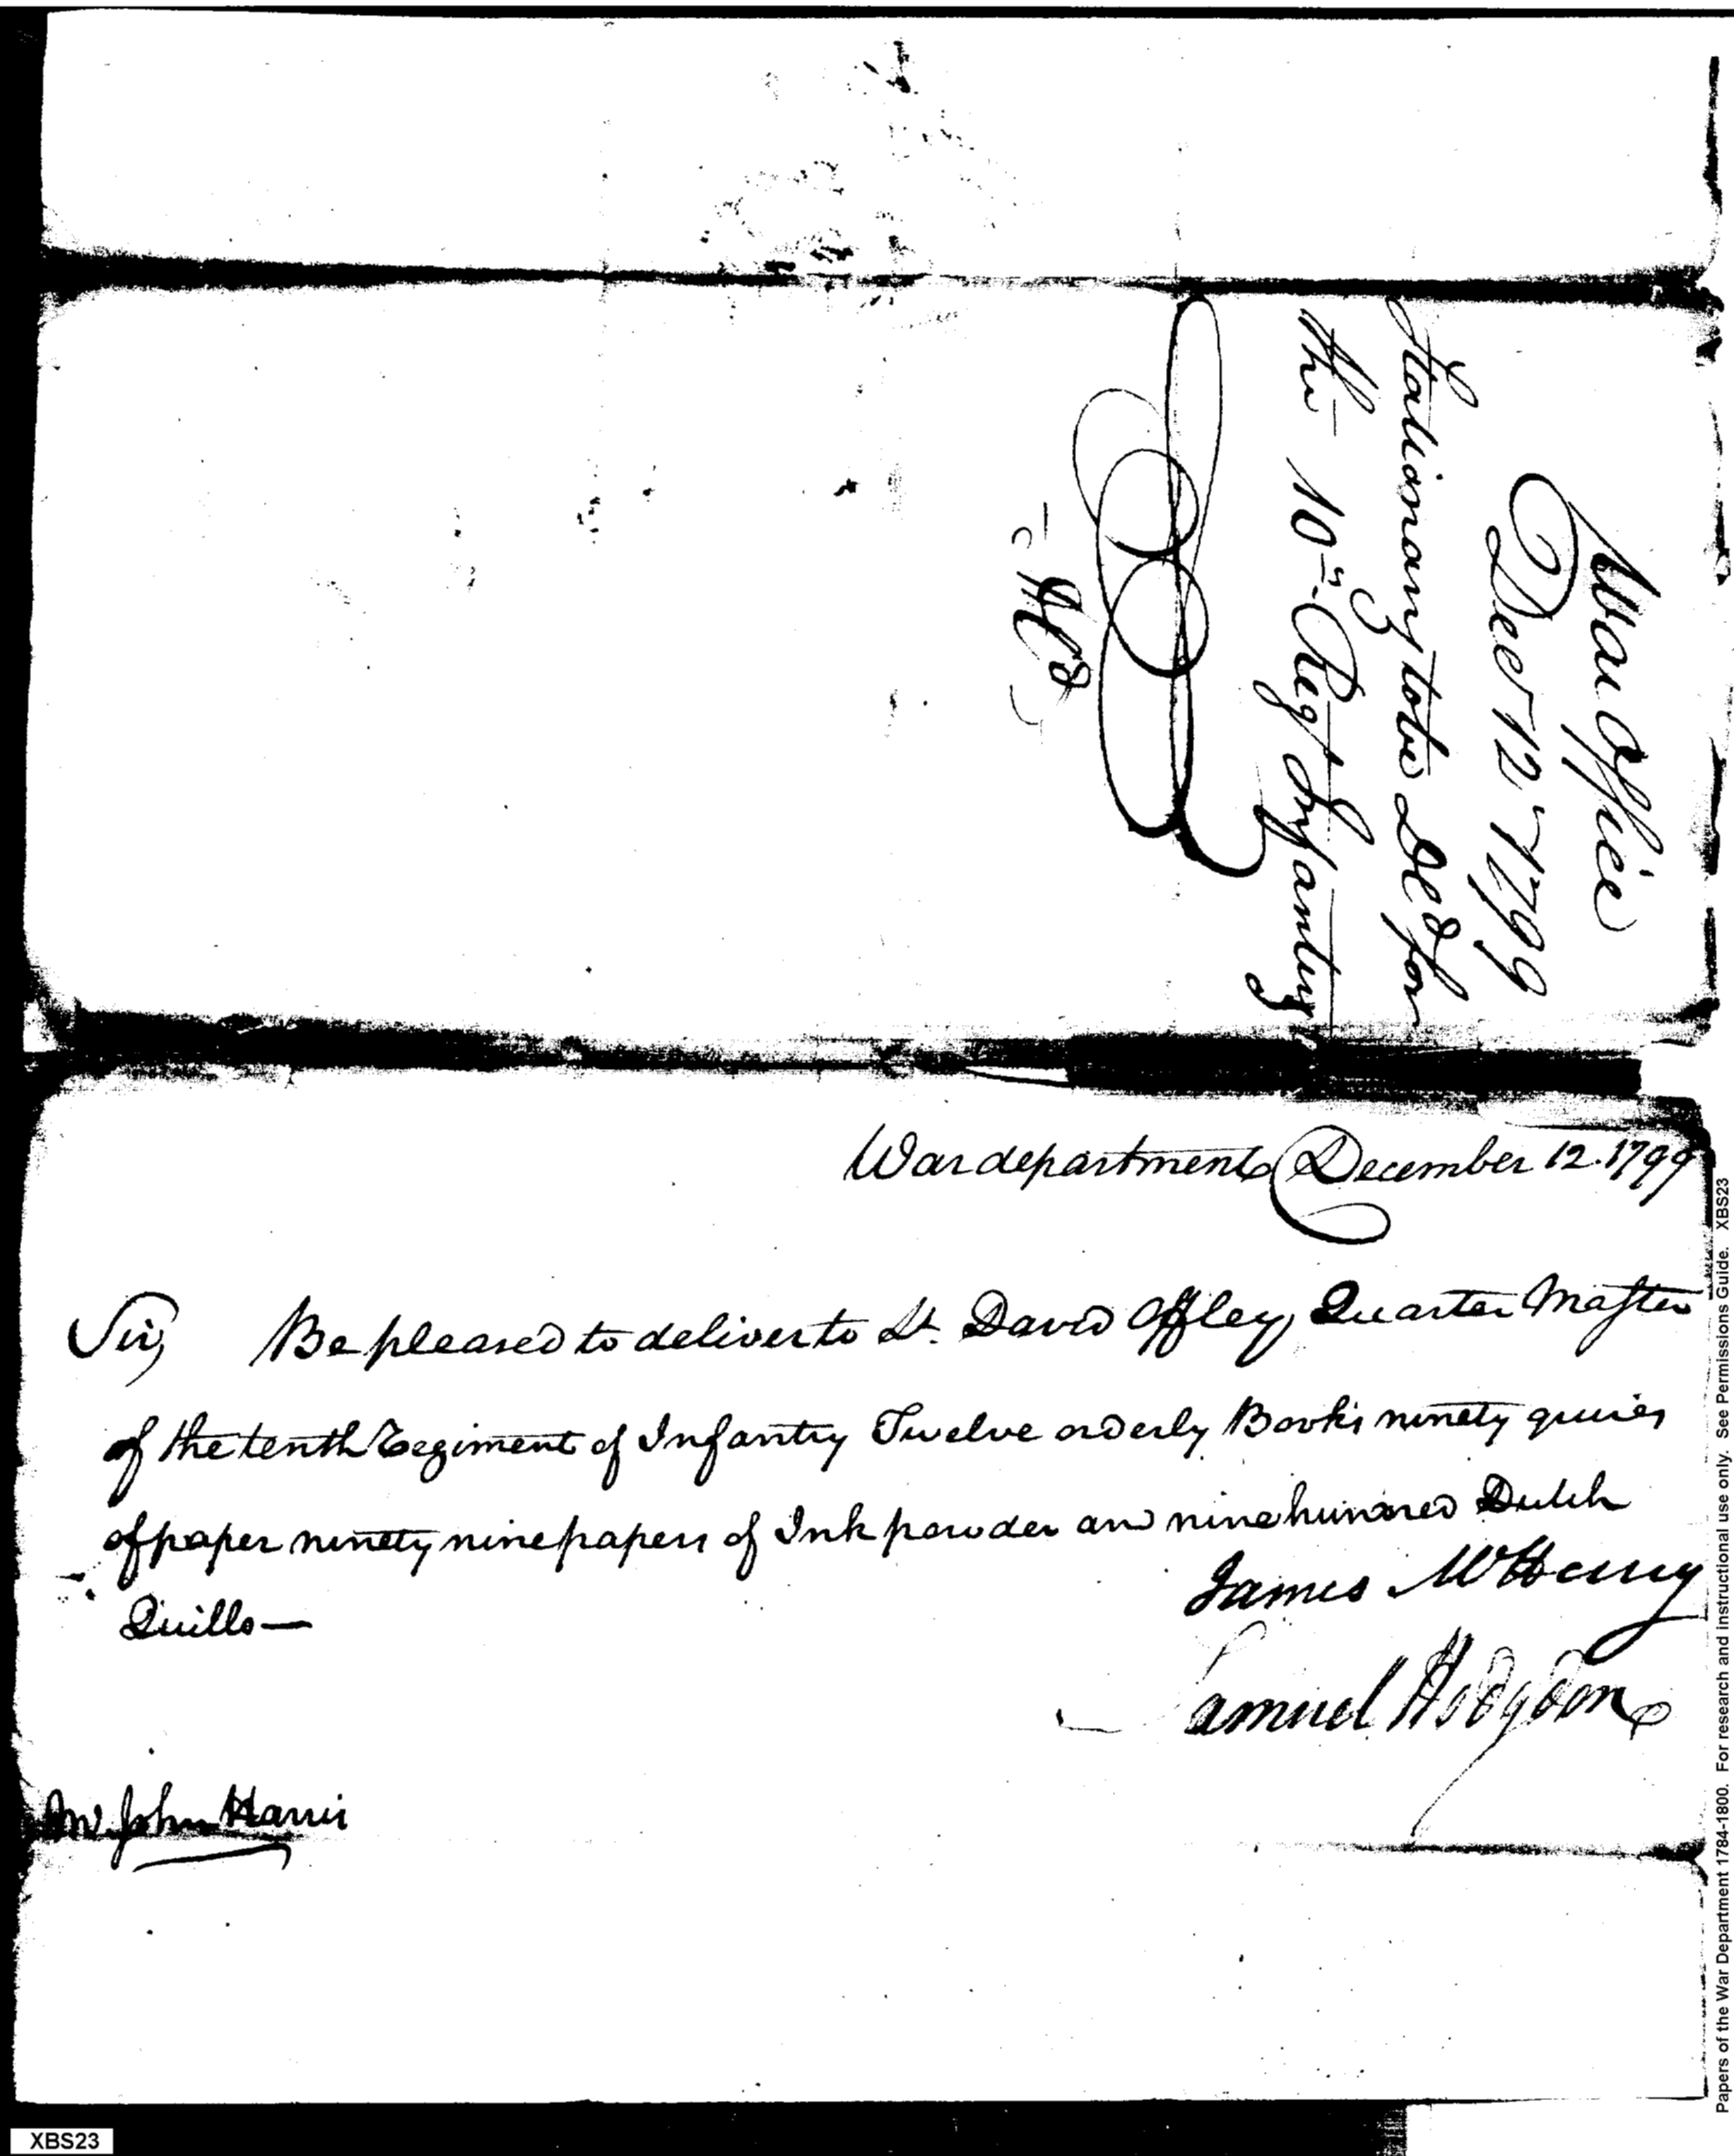 War Office
Decr 12" 1799
Stationary to be Del'd for
the 10th Regt Infantry
War department December 12. 1799
Sir, Be pleased to deliver to Lt. David Offley, Quarter Master
of the tenth Regiment of Infantry Twelve orderly Books ninety quires
of paper ninety nine papers of Ink powder and nine hundred Dutch
Quills—
James McHenry
Samuel Hodgdon
Mr. John Harris
Papers of the War Department 1784-1800. For research and instructional use only. See Permissions Guide. XBS23
XBS23